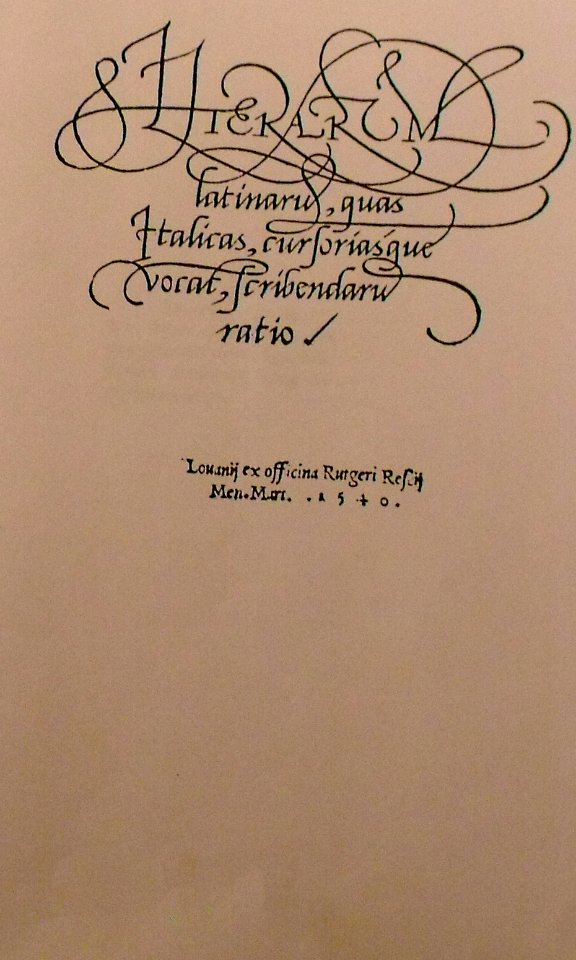 LITERARUM
latinarū, quas
Italicas, cursoriasque
vocāt, scribendarū
ratio
Lovanij ex officina Rutgeri Rescij
Men. Mart. . 1 5 4 0 .